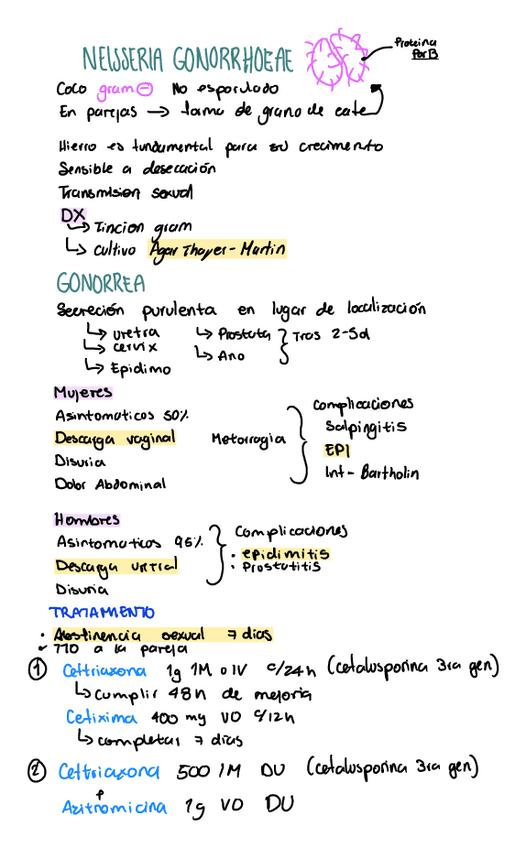 NEISSERIA GONORRHOEAE
Proteina
Por B
Coco gram ⊖ No esporulado
En parejas → forma de grano de cafe
Hierro es fundamental para su crecimento
Sensible a desecación
Transmision sexual
DX
↳ Tincion gram
↳ cultivo Agar Thayer-Martin
GONORREA
Secreción purulenta en lugar de localización
↳ uretra ↳ Prostata } Tras 2-5d
↳ cervix ↳ Ano
↳ Epidimo
Mujeres
Asintomaticos 50%
Descarga vaginal Metorragia
Disuria
Dolor Abdominal
Complicaciones
Salpingitis
EPI
Inf - Bartholin
Hombres
Asintomaticos 95%
Descarga uretral
Disuria
Complicaciones
· epidimitis
· Prostatitis
TRATAMIENTO
· Abstinencia sexual 7 dias
✓ TTO a la pareja
① Ceftriaxona 1g IM o IV c/24h (cefalosporina 3ra gen)
↳ cumplir 48h de mejoria
Cefixima 400 mg VO c/12h
↳ completas 7 dias
② Ceftriaxona 500 IM DU (cefalosporina 3ra gen)
+
Azitromicina 1g VO DU